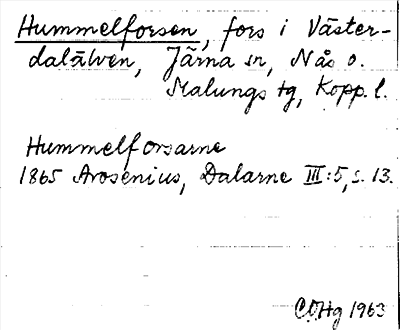 Hummelforsen, fors i Väster-
dalälven, Järna sn, Nås o.
Malungs tg, Kopp. l.
Hummelforsarne
1865 Arosenius, Dalarne III:5, s. 13.
COHg 1963